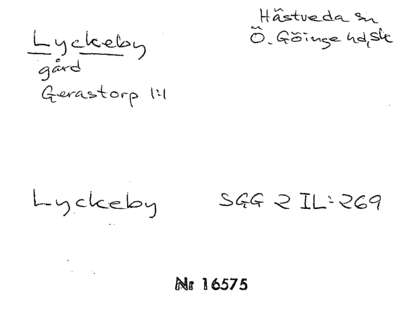 Lyckeby
gård
Gerastorp 1:1
Hästveda sn
Ö. Göinge hd, Sk
Lyckeby SGG 2 IL:269
Nr 16575